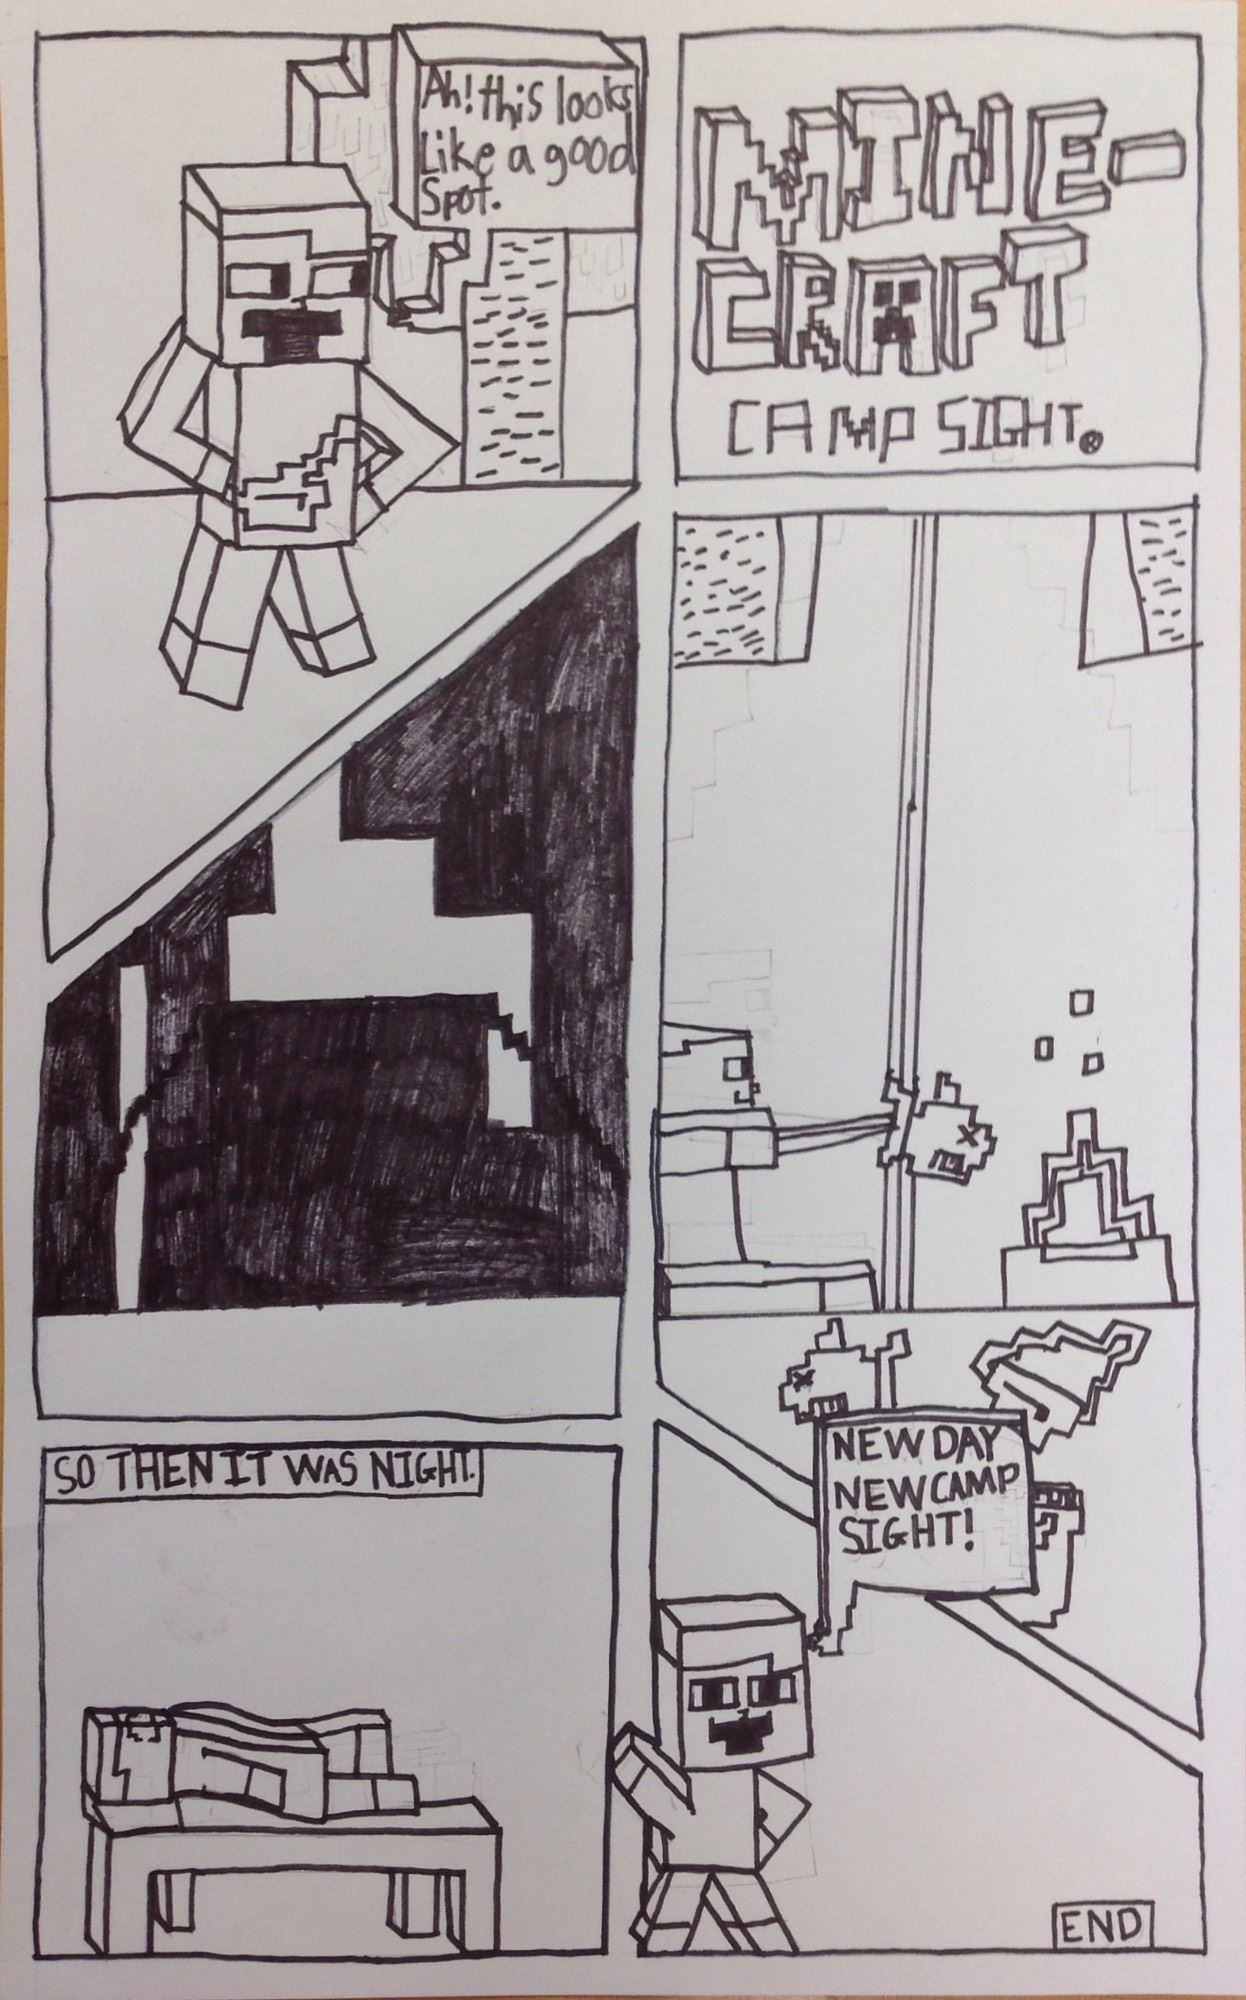 MINE-
CRAFT
CAMP SIGHT.
Ah! this looks
Like a good
Spot.
SO THEN IT WAS NIGHT.
NEW DAY
NEW CAMP
SIGHT!
END